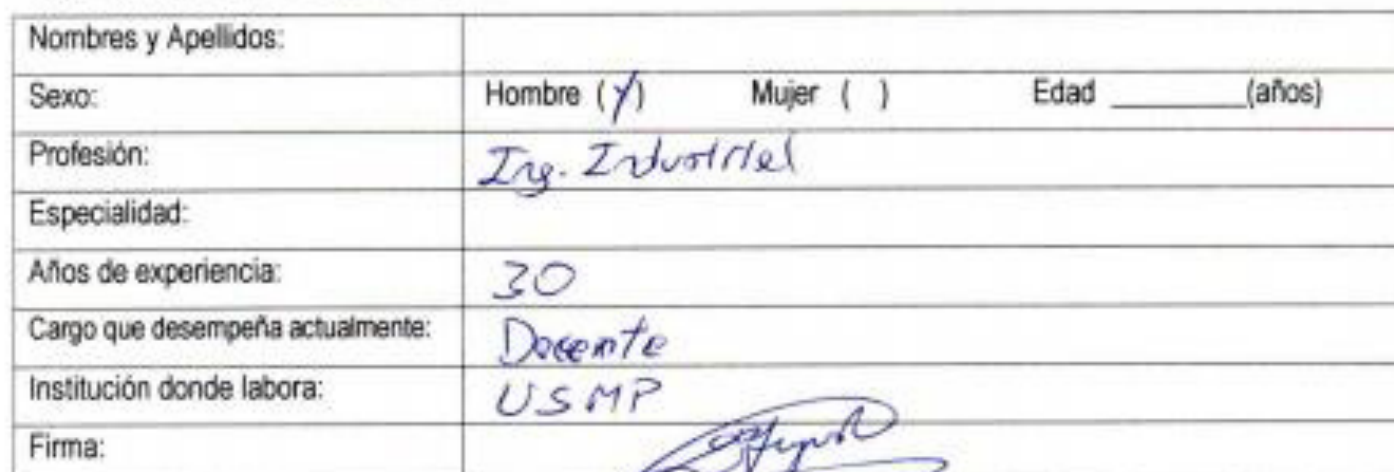 Nombres y Apellidos:
Sexo: Hombre (X) Mujer ( ) Edad ________(años)
Profesión: Ing. Industrial
Especialidad:
Años de experiencia: 30
Cargo que desempeña actualmente: Docente
Institución donde labora: USMP
Firma: